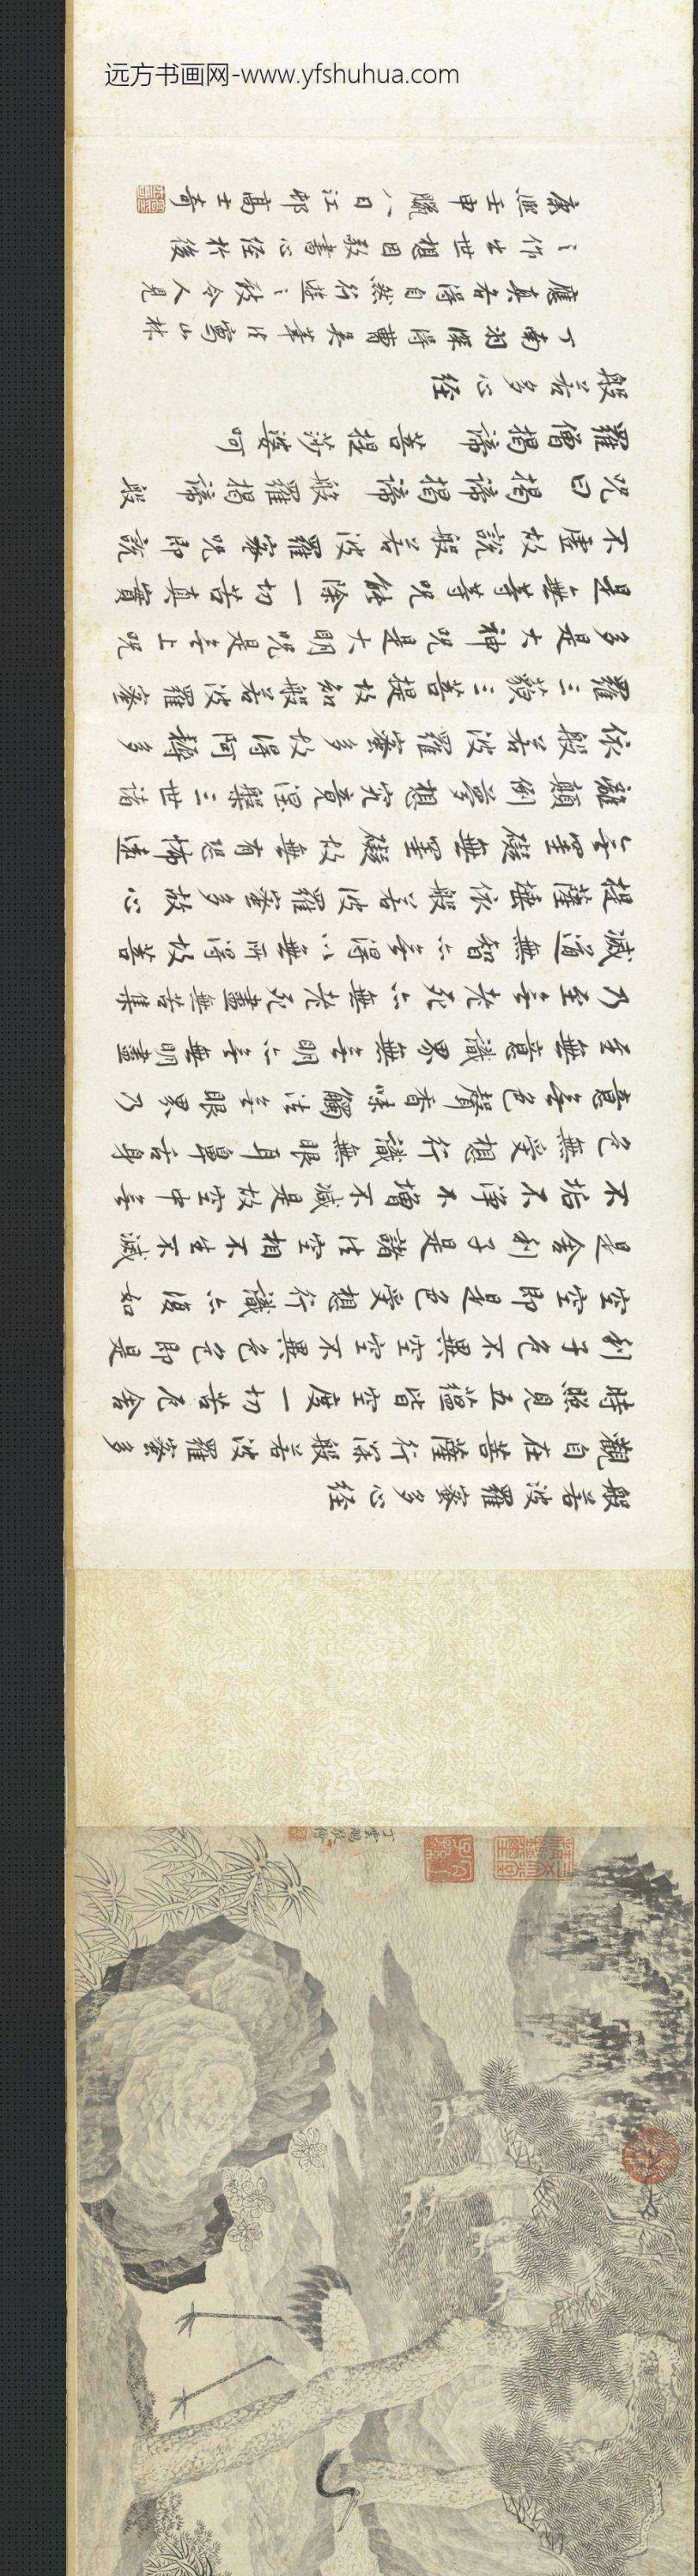 远方书画网-www.yfshuhua.com
般若波羅蜜多心経
觀自在菩薩行深般若波羅蜜多
時照見五蘊皆空度一切苦厄舍
利子色不異空空不異色色即是
空空即是色受想行識亦復如
是舍利子是諸法空相不生不滅
不垢不淨不增不減是故空中無
色無受想行識無眼耳鼻舌身
意無色聲香味觸法無眼界乃
至無意識界無無明亦無無明盡
乃至無老死亦無老死盡無苦集
滅道無智亦無得以無所得故菩
提薩埵依般若波羅蜜多故心
無罣礙無罣礙故無有恐怖遠
離顛倒夢想究竟涅槃三世諸
依般若波羅蜜多故得阿耨多
羅三藐三菩提故知般若波羅蜜
多是大神咒是大明咒是無上咒
是無等等咒能除一切苦真實
不虛故說般若波羅蜜咒即說
咒曰揭諦揭諦般羅揭諦般
羅僧揭諦菩提莎婆呵
般若多心経
丁南羽深得曹吳筆法寫山林
應真者得自然行遊之致令人見
之作出世想因敬書心経於後
康熙壬申臘八日江邨高士奇
三希堂精鑑璽
宜子孫